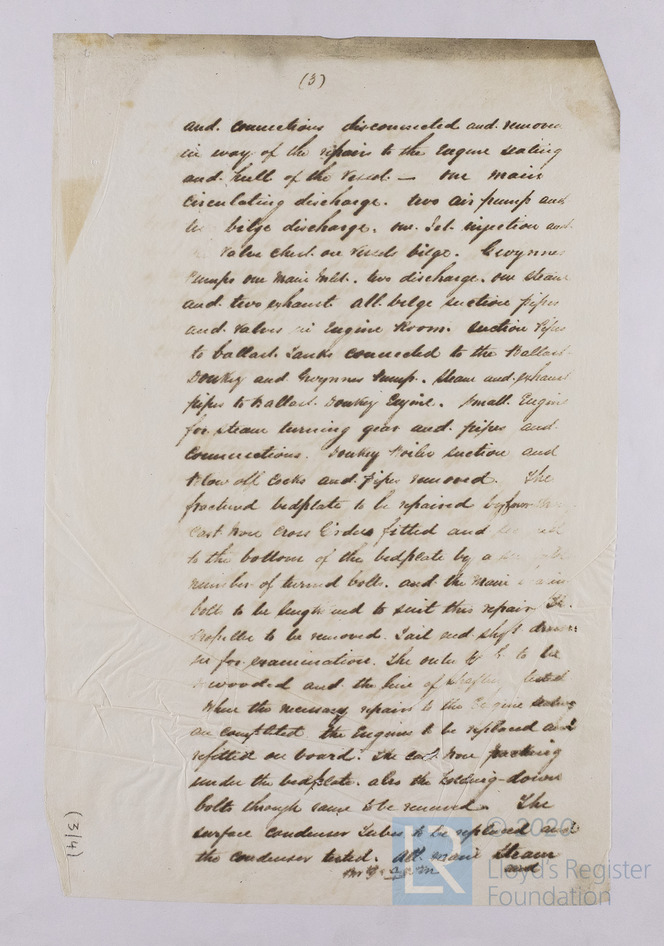 (3)
and connections disconnected and removed
in way of the repairs to the Engine seating
and hull of the Vessel — one main
circulating discharge. two air pump and
bilge discharge. one Jet injection and
Valve chest one Vessels bilge. Gwynnes
Pumps one Main Inlet. two discharge. one steam
and two exhaust all bilge suction pipes
and Valves in Engine Room. suction Pipes
to ballast Tanks connected to the Ballast
Donkey and Gwynnes Pump. steam and exhaust
pipes to Ballast Donkey Engine. small Engine
for steam turning gear and pipes and
Connections. Donkey Boiler suction and
Blow off Cocks and pipes removed. The
fractured bedplate to be repaired by
Cast Iron Cross Girders fitted and
to the bottom of the bedplate by a
number of turned bolts. and the Main
bolts to be lengthened to suit this repair The
Propeller to be removed. Tail end shaft drawn
in for examination. The outer to be
rewooded and the line of Shafting tested
When the necessary repairs to the Engine seating
are completed the Engines to be replaced and
refitted on board. The Cast Iron packing
under the bedplate. also the holding-down
bolts through same to be renewed. The
surface Condenser Tubes to be replaced and
the condenser tested. All main Steam
and
(3/4)
LR
© 2020
Lloyd's Register
Foundation